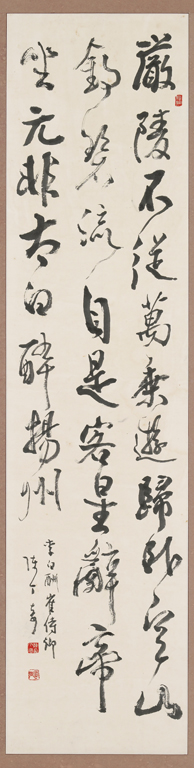 嚴陵不從萬乘遊歸卧空山
釣碧流自是客星辭帝
坐元非太白醉揚州
李白酬崔侍御
陳丁奇